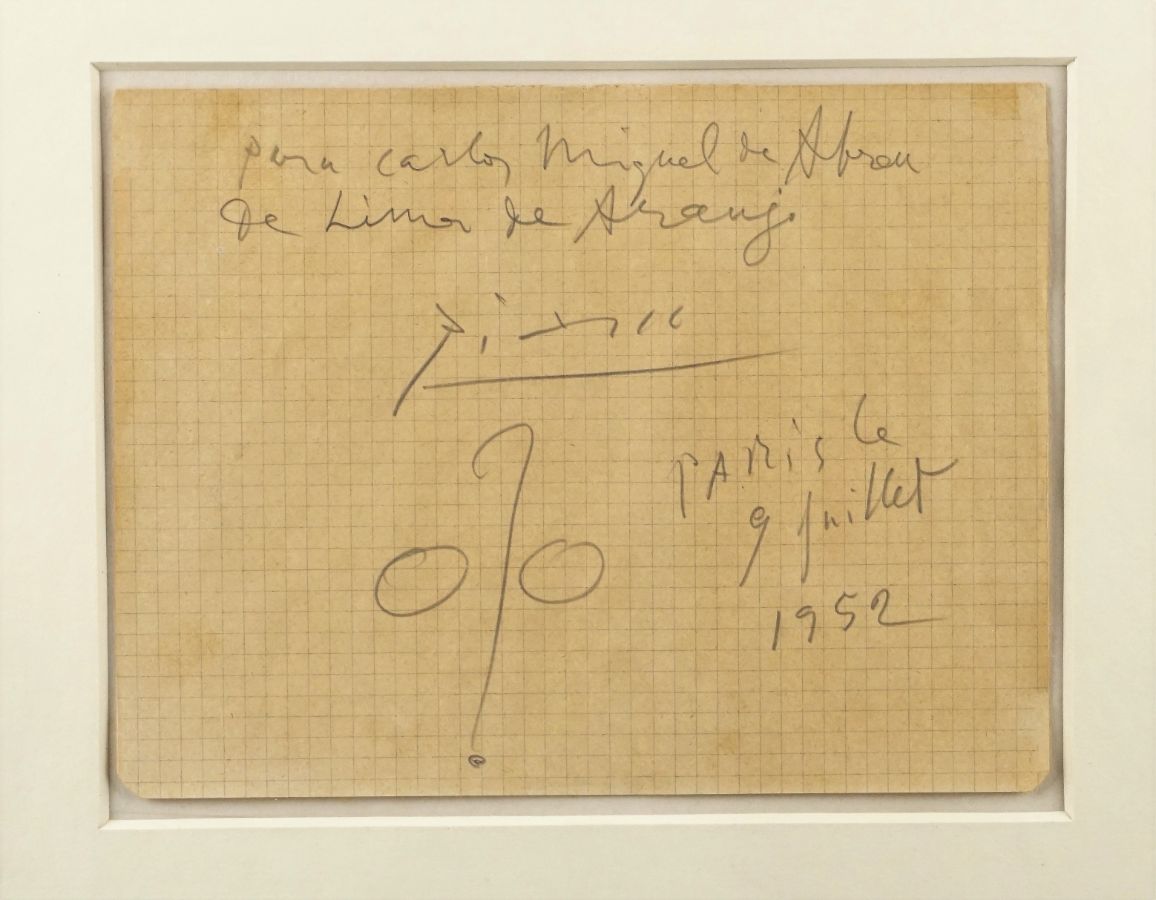 para carlos Miguel de Abreu
de Lima de Araujo
Picasso
PARis le
9 Juillet
1952